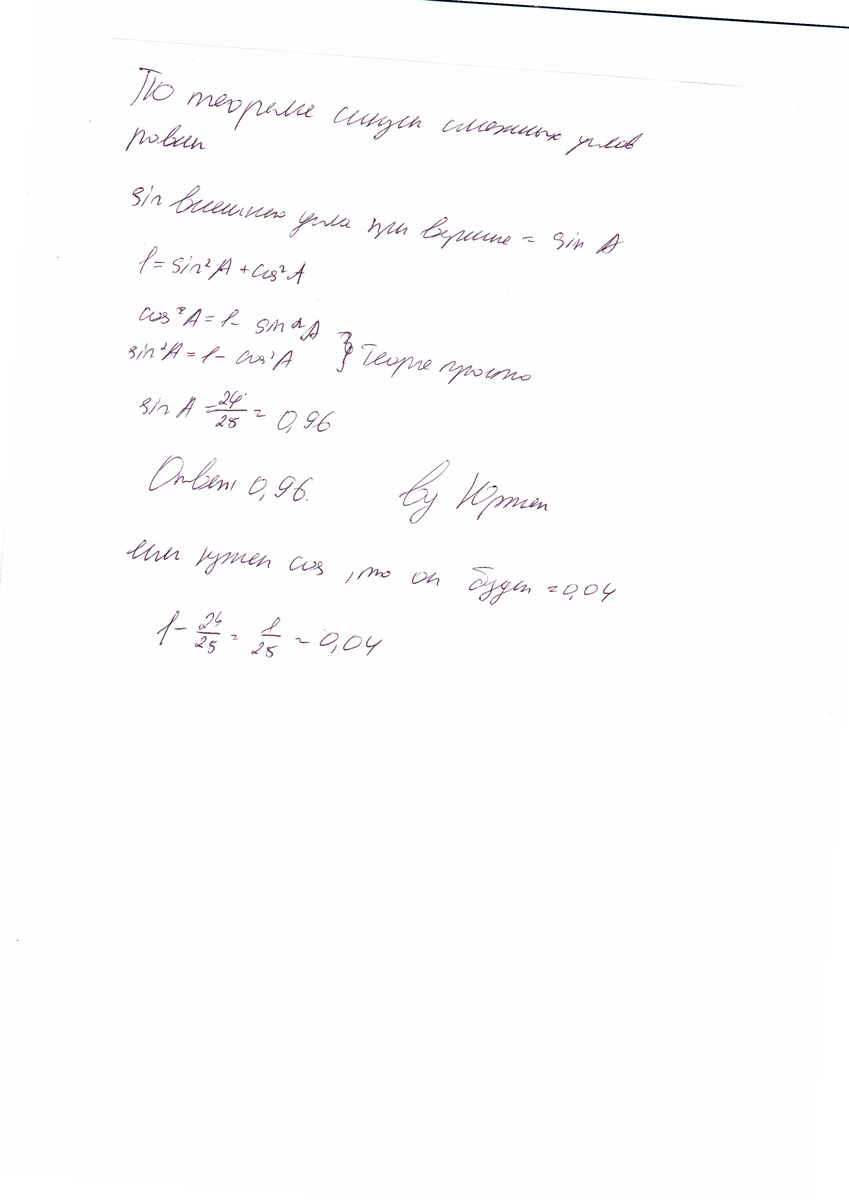 По теореме синусы смежных углов
равны
sin внешнего угла при вершине = sin A
1 = sin² A + cos² A
cos² A = 1 - sin² A
sin² A = 1 - cos² A } Теория просто
sin A = 24/25 = 0,96
Ответ 0,96. by
если нужен cos, то он будет = 0,04
1 - 24/25 = 1/25 = 0,04